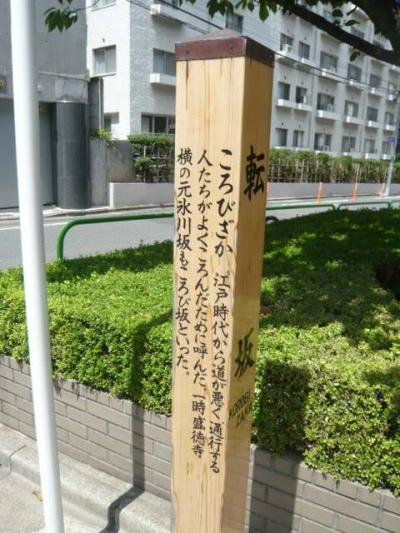 転坂
KOROBI
ZAKA
ころびざか 江戸時代から道が悪く通行する
人たちがよくころんだために呼んだ。一時盛徳寺
横の元氷川坂もころび坂といった。